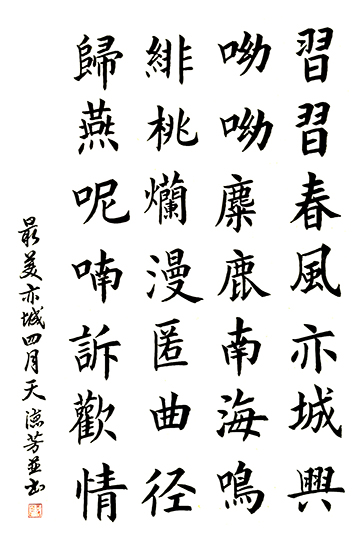 習習春風亦城興
呦呦麋鹿南海鳴
緋桃爛漫匿曲径
歸燕呢喃訴歡情
最美亦城四月天 德芳並书